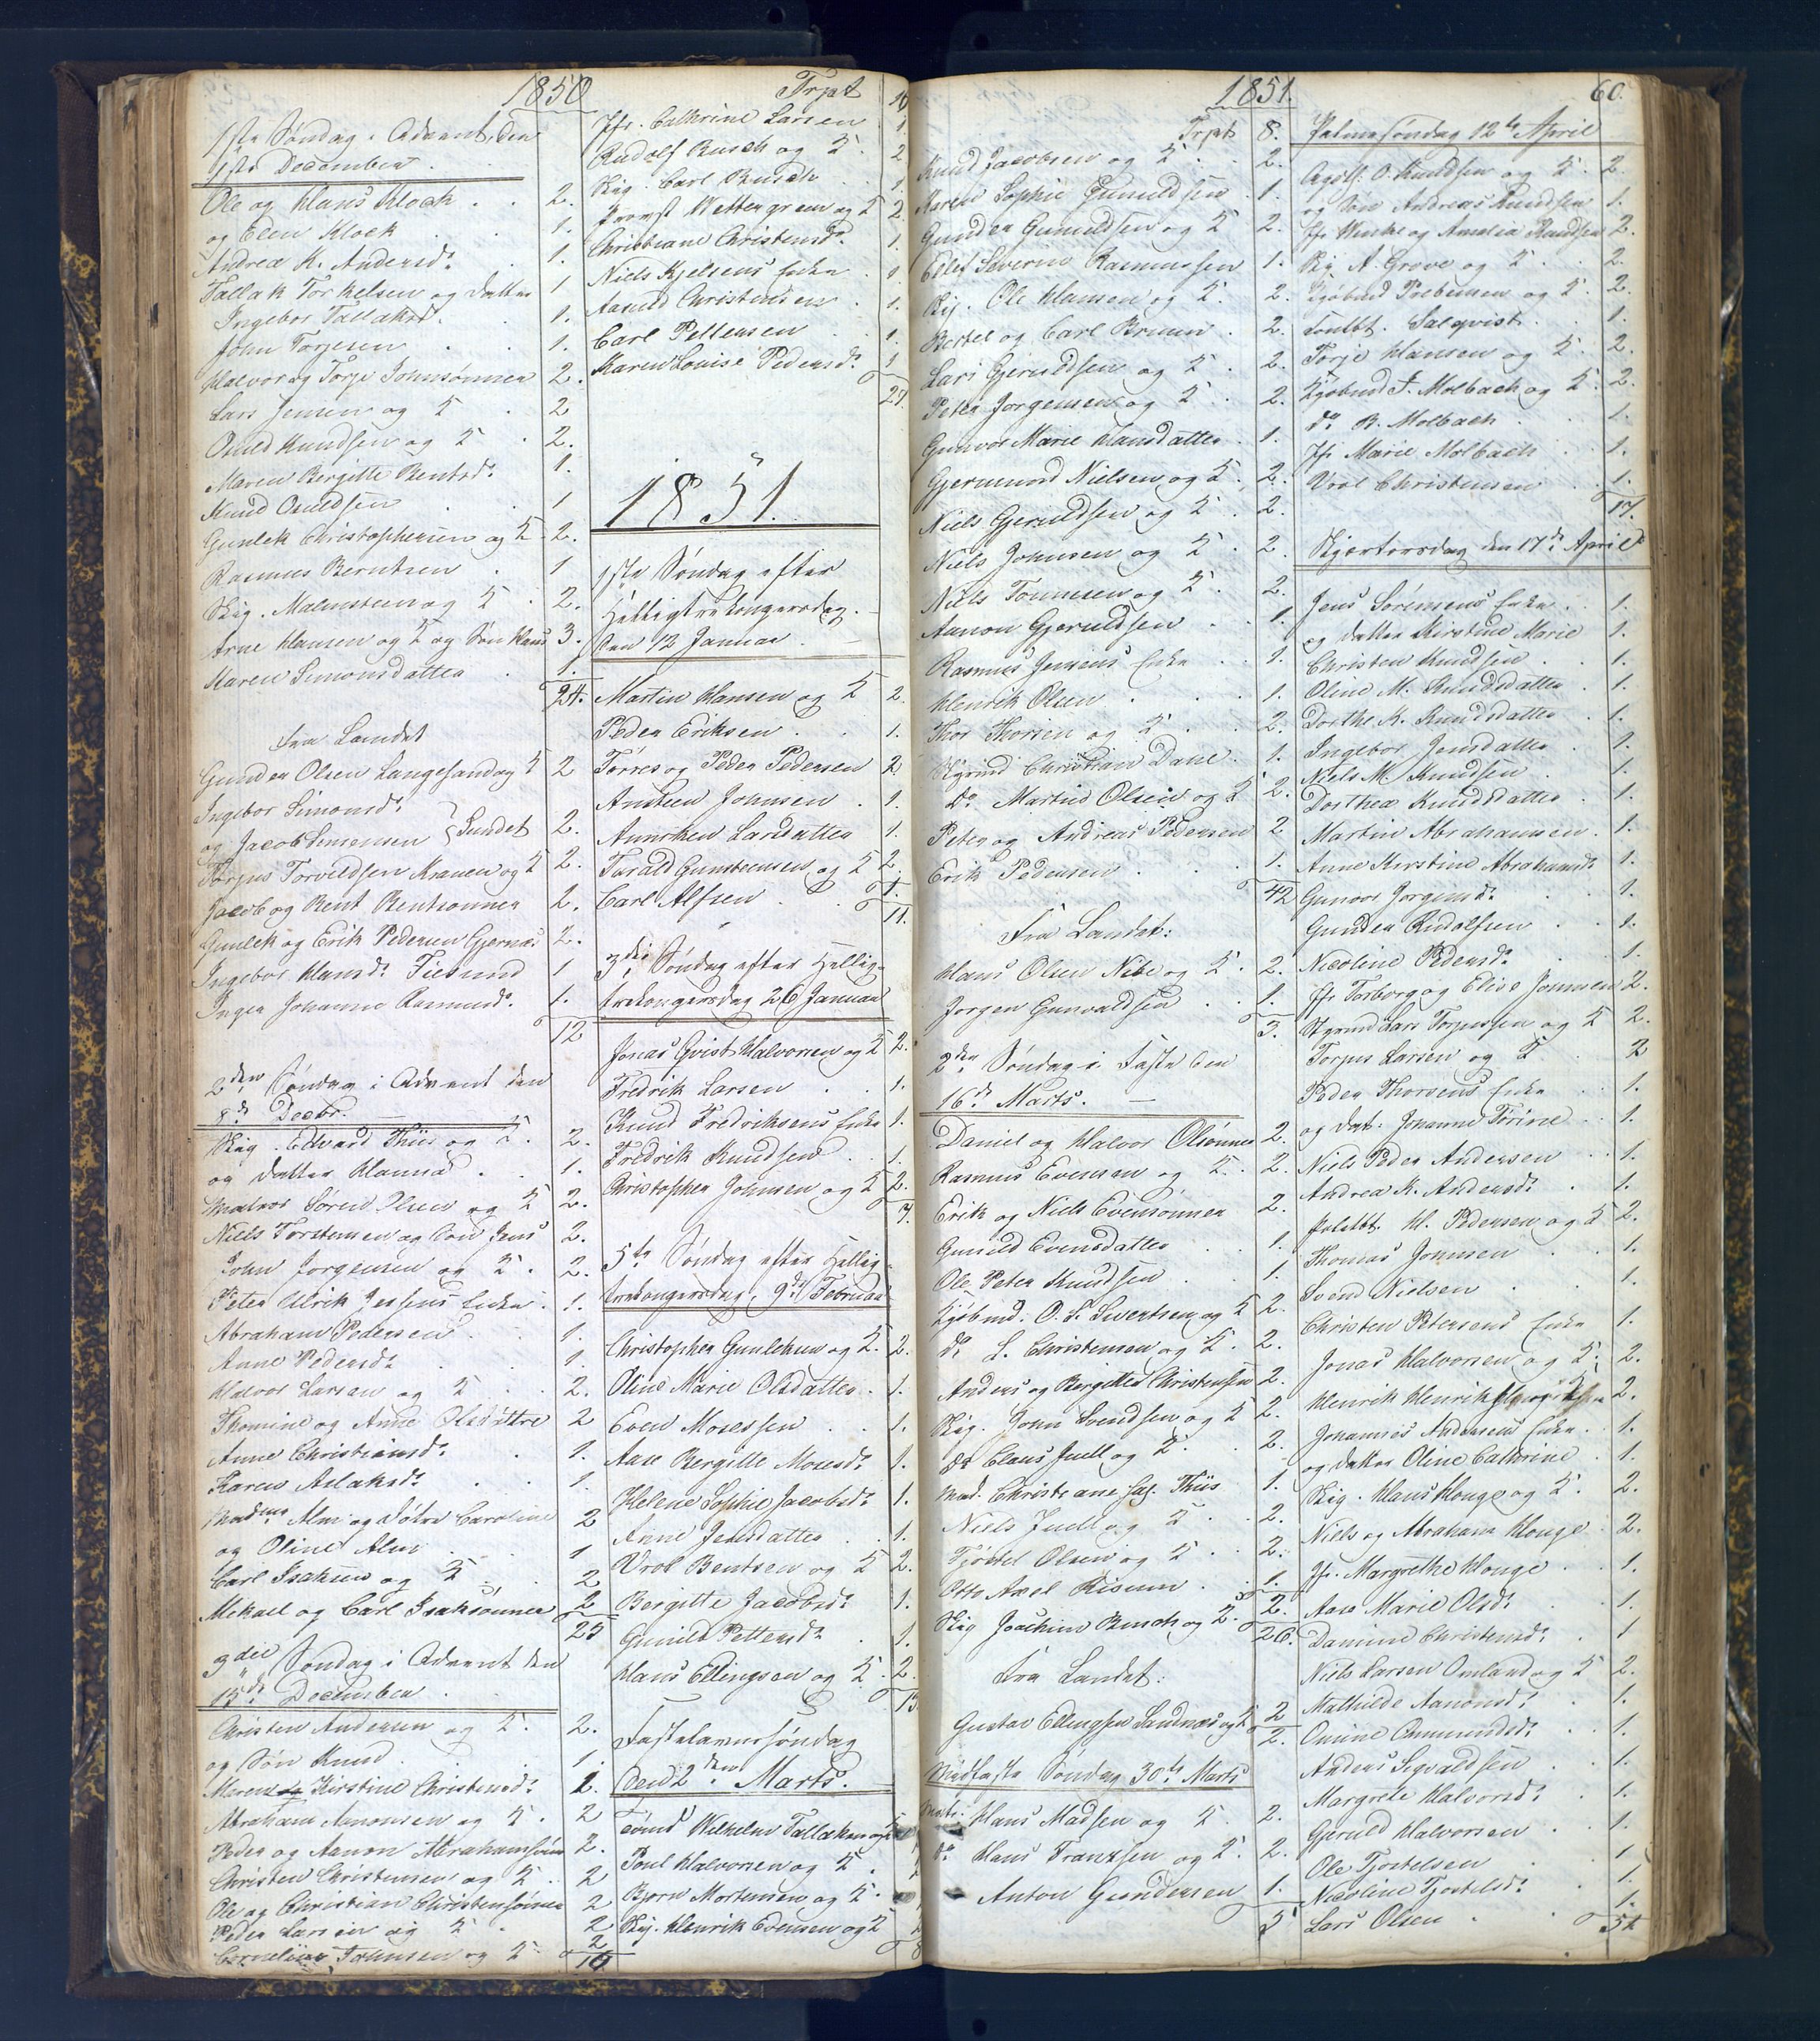 1850
1ste Søndag i Advent, den
1ste December
Ole og Hans Klock . . 2.
og Elen Klock . . 1.
Andrea K. Andersdr . 1.
Tallak Torkelsen og Datter 1
Ingebor Tallaksdr . 1.
John Torjesen . . 1.
Halvor og Torje Johnsønner 2.
Lars Jensen og K . 2
Knudsen og K . 2.
Maren Bergitte Bentsdr 1.
Knud . . 1
Gunlek Christophersen og K 2.
Rasmus Berntsen . 1
Skip. Malmsteen og K . 2.
Arne Hansen og K og Søn Hans 3.
Karen Simonsdatter . 1.
24.
Fra Landet
Gunder Olsen Langesand og K 2
Ingebor Simonsdr
og Jacob Simonsen } Sundet 2.
Torjus Torvildsen Kranen og K 2.
Jacob og Bent Bentsønner 2.
Gunlek og Erik Pedersen Gjernæs 2.
Ingebor Hansdr 1
Inger Johanne Rasmusdr 1.
12
2den Søndag i Advent den
8de Decbr. —
Skip. Edvard Thiis og K. 2.
og Datter Hanna . 1.
Søren Olsen og K 2.
Niels Torstensen og Søn Jens 2.
John Jorgensen og K . 2.
Peter Ulrik Jessens Enke . 1.
Abraham Pedersen . 1.
Anne Pedersdr . . 1.
Halvor Larsen og K . 2.
Thomine og Anne Olsdøttre 2
Anne Christiansdr . 1.
Karen Aslaksdr . . 1.
Madme Alm og Døtre Caroline 2
og Oline Alm . . 1
Carl Isaksen og K . . 2
Mekael og Carl Isaksønner 2
25
3die Søndag i Advent den
15de December .
Christen Andersen og K. 2.
og Søn Knud . . 1.
Maren Kirstine Christensdr 1.
Abraham Aanonsen og K . 2
Peder og Aanon Abrahamsønner 2.
Christen Christensen og K . 2
Ole og Christian Christensønner 2
Peder Larsen og K . 2
Cornelius Johnsen og K . 2
16
Trpt 16
Jfr. Cathrine Larsen 1.
Rudolf Busch og K . 2
Skip. Carl Busch . 1.
Provst Wettergreen og K 2.
Christiane Christensdr 1.
Niels Kjelsens Enke . 1
Aanuld Christensen . 1.
Carl Pettersen . . 1.
Karen Louise Pedersdr 1
27.
1851.
1ste Søndag efter
Helligtrekongersdag.
den 12 Januar .
Martin Hansen og K 2.
Peder Eriksen . . 1.
Tørres og Peder Pedersen 2
Ansteen Johnsen . 1.
Annichen Larsdatter 1.
Tarald Gunsteensen og K 2.
Carl Alfsen . . 1.
11.
3die Søndag efter Hellig-
trekongersdag 26 Januar
Jonas Qvist Halvorsen og K 2.
Fredrik Larsen . . 1.
Knud Fredriksens Enke 1.
Fredrik Knudsen . . 1.
Christopher Johnsen og K 2.
7.
5te Søndag efter Hellig-
trekongersdag, 9de Februar
Christopher Gunleksen og K. 2.
Oline Marie Olsdatter . 1.
Even Mosessen . . 1.
Aase Bergitte Mosesdr 1.
Helene Sophie Jacobsdr 1.
Anne Jensdatter . . 1.
Vrol Bentsen og K 2.
Bergitte Jacobsdr 1.
Gunild Pettersdr . 1.
Hans Ellingsen og K . 2.
13.
Fastelavnssøndag
den 2den Marts.
Wilhelm Tallaksen og K
Poul Halvorsen og K .
Bjorn Mortensen og K .
Skip. Henrik Edensen og K
1851. 60.
Trpt 8.
Knud Jacobsen og K . . 2.
Karen Sophie Gunuldsen . 1.
Gunder Gunuldsen og K . 2.
Ellef Severin Rasmussen 1.
Skip. Ole Hansen og K . 2.
Bertel og Carl Bruun . 2.
Lars Gjeruldsen og K . 2.
Peter Jorgensen og K . 2.
Gunvor Marie Hansdatter . 1.
Gjermund Nielsen og K . 2.
Niels Gjeruldsen og K . 2.
Niels Johnsen og K . 2.
Niels Tonnesen og K . 2.
Aanon Gjeruldsen . . 1.
Rasmus Jensens Enke . . 1.
Henrik Olsen . . 1.
Thor Thorsen og K . . 2.
Styrmd Christian Dahl . 1.
do Martin Olsen og K 2.
Peter og Andreas Pedersen 2
Erik Pedersen . . 1.
42
Fra Landet:
Hans Olsen Nibe og K . 2.
Jorgen Gunvaldsen . . 1.
3.
2den Søndag i Faste den
16de Marts. —
Daniel og Halvor Olsønner 2.
Rasmus Evensen og K . . 2.
Erik og Niels Evensønner 2.
Gunild Evensdatter . . 1.
Ole Peter Knudsen . . 1.
Kjøbmd. O. S. Sivertsen og K 2.
do L. Christensen og K . 2.
Anders og Bergitte Christensen 2.
Skip. John Svendsen og K 2.
do Claus Juell og K . . 2.
Mad. Christiane Thiis 1.
Niels Juell og K . . 2.
Tjøstel Olsen og K . . 2.
Otto Axel Risum . . 1.
Skip Joachim Busch og K . 2.
26.
Fra Landet:
Gustav Ellingsen Sandnæs og K 2
2.
Midfaste Søndag 30te Marts
Hans Madsen og K . 2.
do Hans Frantzsen og K . 2.
Anton Gundersen 1.
5
Palmesøndag 12te April
O. Knudsen og K . 2.
og Søn Andreas Knudsen 1.
Jfr Winkel og Amalia Knudsen 2.
Skip. A. Grove og K . . 2.
Kjøbmd Prebensen og K . 2.
Salqvist . . 1.
Torje Hansen og K . 2.
Kjøbmd F. Molbach og K . 2.
do B. Molbach . . 1.
Jfr Marie Molbach . . 1.
Vrol Christensen . . 1.
17.
Skjertorsdag den 17de April
Jens Sørensens Enke . . 1.
og Datter Kirstine Marie 1.
Christen Knudsen . . 1.
Oline M. Knudsdatter . 1.
Dorthe K. Knudsdatter . 1.
Ingebor Jensdatter . 1.
Niels M. Knudsen . 1.
Dorthea Knudsdatter . 1.
Martin Abrahamsen . 1.
Anne Kirstine Abrahamsdr 1.
Gunvor Jorgensdr . 1.
Gunder Rudolfsen . . 1.
Nicoline Pedersdr . . 1.
Jfr Torborg og Elise Johnsen 2.
Styrmd Lars Torjussen og K 2.
Torjus Larsen og K . 2
Peder Thorsens Enke . 1.
og Dat. Johanne Torine . . 1.
Niels Peder Andersen . . 1.
Andrea K. Andersdr . 1.
H. Pedersen og K 2.
Thomas Johnsen . . 1.
Svend Nielsen . . 1.
Christen Petersens Enke 1.
Jonas Halvorsen og K . 2.
Henrik Henriksen 2.
Johannes Andersens Enke . 1.
og Datter Oline Cathrine . 1.
Skip. Hans Houge og K . 2.
Niels og Abraham Houge . 2.
Jfr. Margrethe Houge . . 1.
Aase Marie Olsdr . . 1.
Christensdr . . 1
Niels Larsen Omland og K 2.
Mathilde Aanonsdr . 1.
Omine Ommundsdr . . 1.
Anders Sigvaldsen . 1.
Margrete Halvorsdr . 1.
Gjeruld Halvorsen . . 1.
Ole Tjostelsen . . 1
Nicoline Tjostelsdr . 1.
Lars Olsen . . 1.
51